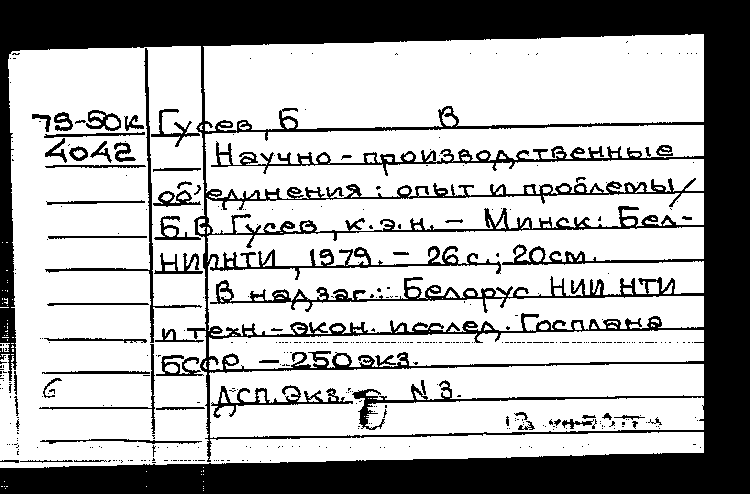 79-50к Гусев, Б В
4042 Научно-производственные
об'единения: опыт и проблемы/
Б.В. Гусев, к.э.н. – Минск: Бел-
НИИНТИ, 1979. – 26 с.; 20 см.
В надзаг.: Белорус НИИ НТИ
и техн.-экон. исслед. Госплана
БССР. – 250 экз.
ДСП. Экз. N 3.